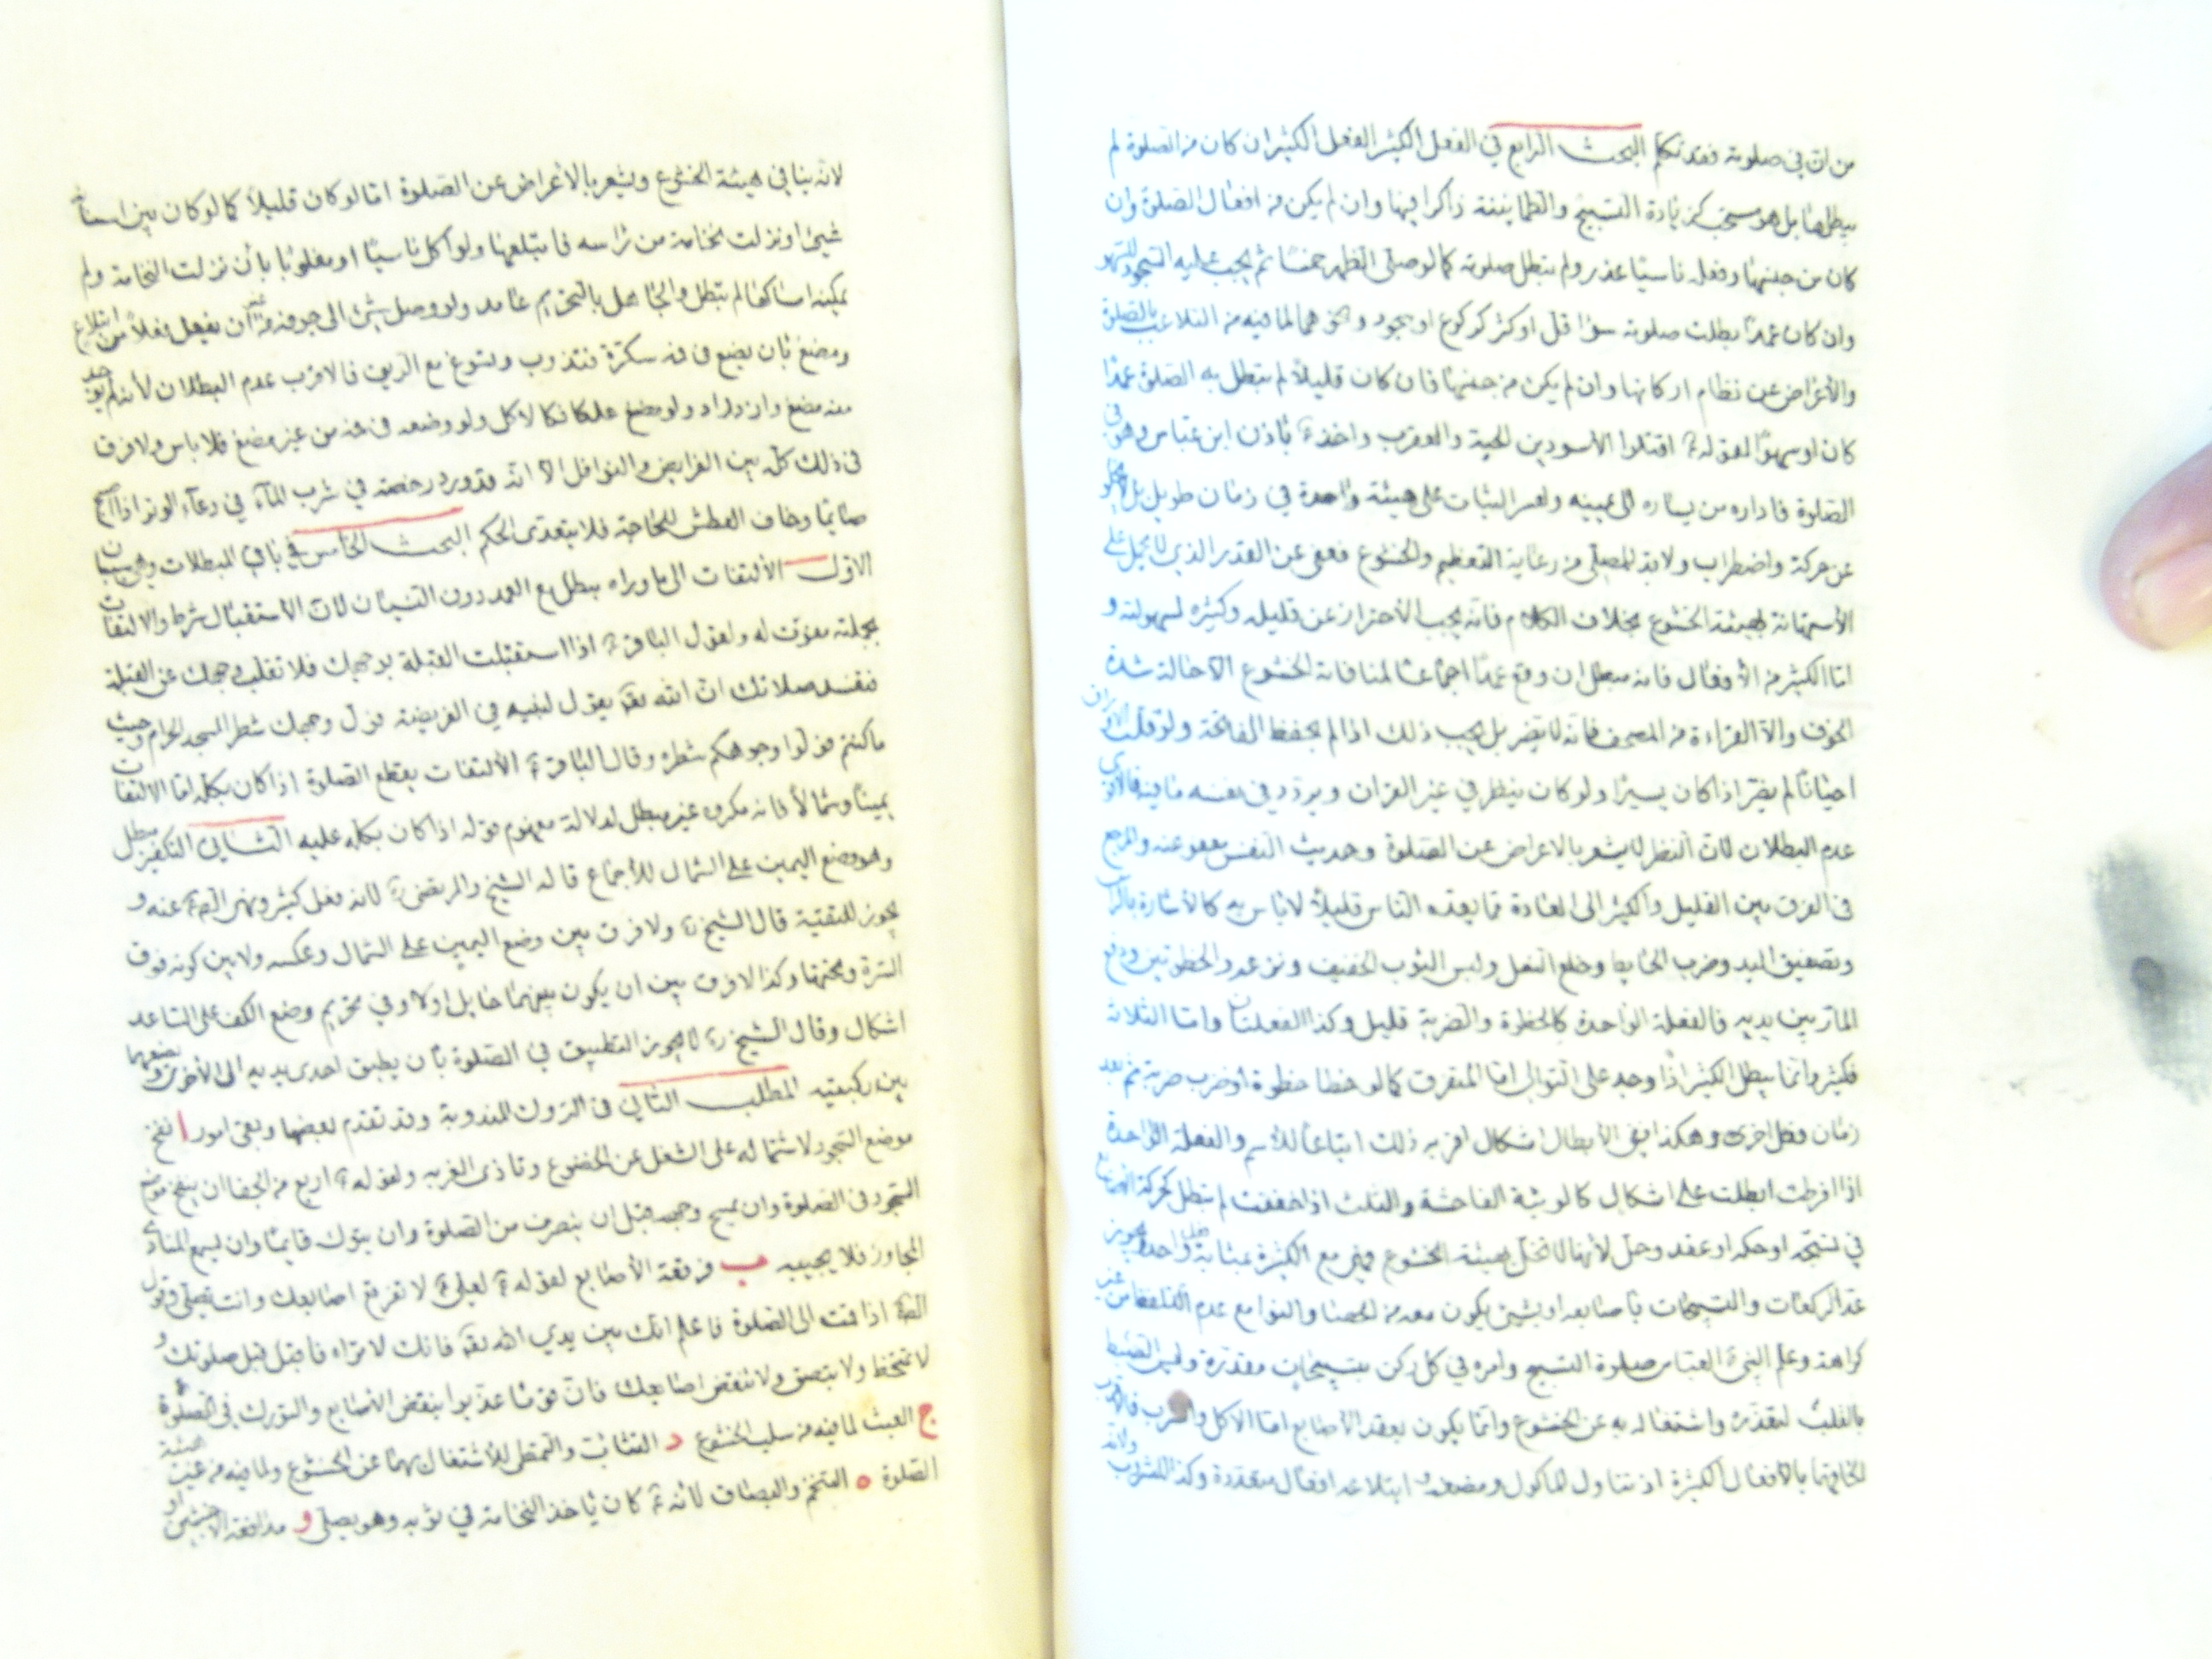 من انّ في صلوته فقد تكلم البحث الرابع في الفعل الكثير الفعل الكثير ان كان من الصلوة لم
يبطلها بل هو مستحب كزيادة التسبيح والطمانينة ذاكرا فيها وان لم يكن من افعال الصلوة وان
كان من جنسها وفعله ناسيا عذر ولم يبطل صلوته كما لو صلى الظهر خمسا ثم يجب عليه السجود للسهو
وان كان عمدا بطلت صلوته سواء قل او كثر كركوع او سجود ونحوهما لما فيه من التلاعب بالصلوة
والاعراض عن نظام اركانها وان لم يكن من جنسها فان كان قليلا لم يبطل به الصلوة عمدا
كان او سهوا لقوله ع اقتلوا الاسودين الحية والعقرب واخذ ع باذن ابن عباس وهو في
الصلوة فاداره من يساره الى يمينه ولعسر الثبات على هيئة واحدة في زمان طويل بل لا يخلو
عن حركة واضطراب ولا بد للمصلي من رعاية التعظيم والخشوع فعفي عن القدر الذي لا يحمل على
الاستهانة لهيئة الخشوع بخلاف الكلام فانه يجب الاحتراز عن قليله وكثيره لسهولته و
اما الكثير من الافعال فانه مبطل ان وقع عمدا اجماعا لمنافاته الخشوع الا حالة شدة
الخوف والا القراءة من المصحف فانه لا يضر بل يجب ذلك اذا لم يحفظ الفاتحة ولو قلب الاوراق
احيانا لم يضر اذا كان يسيرا ولو كان ينظر في غير القران ويردد في نفسه ما فيه فالاقوى
عدم البطلان لان النظر لا يشعر بالاعراض عن الصلوة وحديث النفس معفو عنه والمرجع
في الفرق بين القليل والكثير الى العادة فما يعده الناس قليلا لا باس به كالاشارة بالراس
وتصفيق اليد وضرب الحائط وخلع النعل ولبس الثوب الخفيف ونزعه والخطوتين ودفع
المار بين يديه فالفعلة الواحدة كالخطوة والضربة قليل وكذا الفعلتان واما الثلاثة
فكثير وانما يبطل الكثير اذا وجد على التوالي اما المتفرق كما لو خطا خطوة او ضرب ضربة ثم بعد
زمان فعل اخرى وهكذا ففي الابطال اشكال اقربه ذلك اتباعا للاسم والفعلة الواحدة
اذا افرطت ابطلت على اشكال كالوثبة الفاحشة والثلث اذا خففت لم تبطل كحركة الاصابع
في تسبيحه او حكه او عقد وحل لانها لا تخل بهيئة الخشوع فهي مع الكثرة بمثابة فعل واحد ويجوز
عد الركعات والتسبيحات باصابعه او بشيء يكون معه من الحصا والنوا مع عدم التلفظ من غير
كراهة وعلم النبي ع العباس صلوة التسبيح وامره في كل ركن بتسبيحات مقدرة وليس الضبط
بالقلب لتعذره واشتغاله به عن الخشوع وانما يكون بعقد الاصابع اما الاكل والشرب فالاقرب
لحاقهما بالافعال الكثيرة اذ تناول الماكول ومضغه وابتلاعه افعال متعددة وكذا الشراب ولانه
لانه ينافي هيئة الخشوع ويشعر بالاعراض عن الصلوة اما لو كان قليلا كما لو كان بين اسنانه
شيئ او نزلت نخامة من راسه فابتلعها ولو اكل ناسيا او مغلوبا بان نزلت النخامة ولم
يمكنه امساكها لم يبطل والجاهل بالتحريم عامد ولو وصل شيئ الى جوفه من غير ان يفعل فعلا من ابتلاع
ومضغ بان يضع في فه سكرة فتذوب وتسوغ مع الريق فالاقرب عدم البطلان لانه لم يوجد
منه مضغ وازدراد ولو مضغ علكا فكالاكل ولو وضعه في فه من غير مضغ فلا باس ولا فرق
في ذلك كله بين الفرايض والنوافل الا انه قد ورد رخصة في شرب الماء في دعاء الوتر اذا اصبح
صايما وخاف العطش للحاجة فلا يتعدى الحكم البحث الخامس في باقي المبطلات وهي سببان
الاول الالتفات الى ما وراه يبطل مع العمد دون النسيان لان الاستقبال شرط والالتفات
بجملته مفوت له ولقول الباقر ع اذا استقبلت القبلة بوجهك فلا تقلب وجهك عن القبلة
فتفسد صلاتك ان الله تعالى يقول لنبيه في الفريضة فول وجهك شطر المسجد الحرام وحيث
ما كنتم فولوا وجوهكم شطره وقال الباقر ع الالتفات يقطع الصلوة اذا كان بكله اما الالتفات
يمينا وشمالا فانه مكروه غير مبطل لدلالة مفهوم قوله اذا كان بكله عليه الثاني التكفير مبطل
وهو وضع اليمين على الشمال للاجماع قاله الشيخ والمرتضى ره لانه فعل كثير ونهى الائمة ع عنه و
يجوز للتقية قال الشيخ ره ولا فرق بين وضع اليمين على الشمال وعكسه ولا بين كونه فوق
السرة وتحتها وكذا لا فرق بين ان يكون بينهما حايل او لا وفي تحريم وضع الكف على الساعد
اشكال وقال الشيخ ره لا يجوز التطبيق في الصلوة بان يطبق احدى يديه الى الاخرى ويضعهما
بين ركبتيه المطلب الثاني في التروك المندوبة وقد تقدم بعضها وبقي امور ا نفخ
موضع السجود لاشتماله على الشغل عن الخضوع وتاذى الغير به ولقوله ع اربع من الجفا ان ينفخ موضع
السجود في الصلوة وان يمسح وجهه قبل ان ينصرف من الصلوة وان يبول قايما وان يسمع المنادي
المجاوز فلا يجيبه ب فرقعة الاصابع لقوله ع لعلي ع لا تفرقع اصابعك وانت تصلي وقول
الصادق ع اذا قمت الى الصلوة فاعلم انك بين يدي الله تعالى فانك لا تراه فاقبل قبل صلوتك و
لا تمتخط ولا تبصق ولا تنقض اصابعك فان قوما عذبوا بنقض الاصابع والتورك في الصلوة
ج العبث لما فيه من سلب الخشوع د التثاوب والتمطي للاشتغال بهما عن الخشوع ولما فيه من تغيير هيئة
الصلوة ه التنخم والبصاق لانه ع كان ياخذ النخامة في ثوبه وهو يصلي و مدافعة الاخبثين او